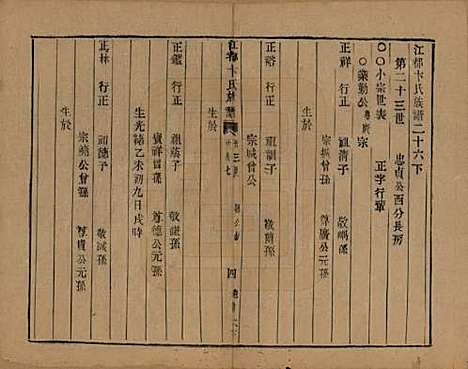 江都卞氏族譜二十六下
第二十三世 忠貞公西分長房
〇〇小宗世表 正字行輩
〇業勤公 宗
正祥 行正 祖清子 敬 孫
宗 曾孫 尊廣公元孫
生於
正裕 行正 祖 子 敬 孫
宗城曾公
江都卞氏族譜 四
正鑑 行正 祖蔭子 敬謙孫
寶祥曾孫 尊德公元孫
生光緒乙未 初九日戌時
正林 行正 祖德子 敬誠孫
宗堯公曾孫 尊貴公元孫
生於